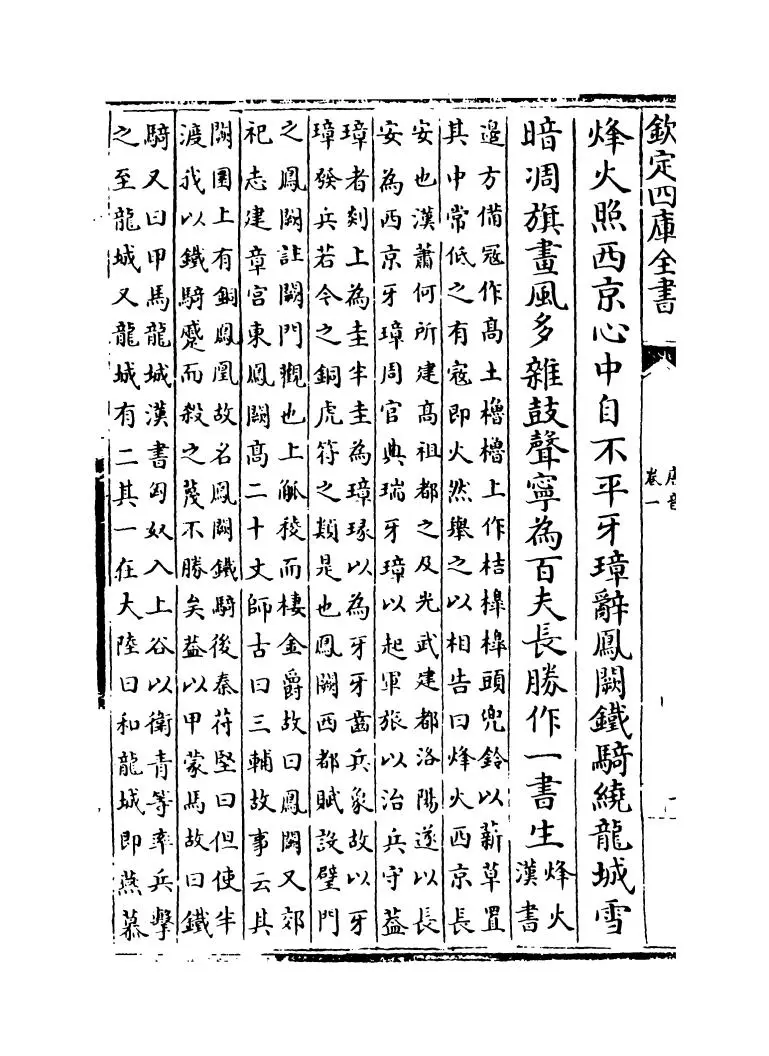 欽定四庫全書
卷一
烽火照西京心中自不平牙璋辭鳳闕鐵騎繞龍城雪
暗凋旗畫風多雜鼓聲寧為百夫長勝作一書生
烽火
漢書
邉方備冦作髙土櫓櫓上作桔橰橰頭兜鈴以薪草置
其中常低之有寇即火然舉之以相告曰烽火西京長
安也漢蕭何所建髙祖都之及光武建都洛陽遂以長
安為西京牙璋周官典瑞牙璋以起軍旅以治兵守葢
璋者剡上為圭半圭為璋琢以為牙牙齒兵象故以牙
璋發兵若今之銅虎符之類是也鳳闕西都賦設璧門
之鳳闕註闕門觀也上觚稜而棲金爵故曰鳳闕又郊
祀志建章宮東鳳闕髙二十丈師古曰三輔故事云其
闕圜上有銅鳳凰故名鳳闕鐵騎後秦苻堅曰但使半
渡我以鐵騎蹙而殺之蔑不勝矣葢以甲蒙馬故曰鐵
騎又曰甲馬龍城漢書匈奴入上谷以衛青等率兵擊
之至龍城又龍城有二其一在大陸曰和龍城即燕慕